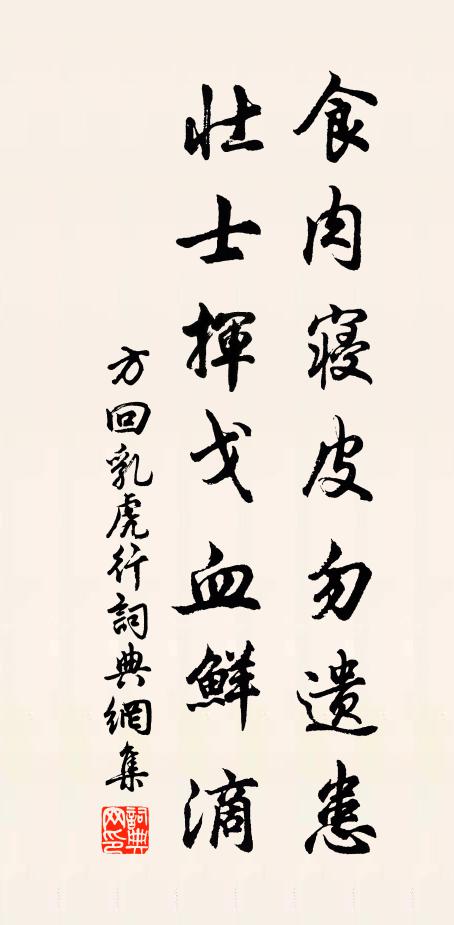 食肉寝皮勿遗患
壮士揮戈血鮮滴
方回乳虎行詞典網集
詞典網印